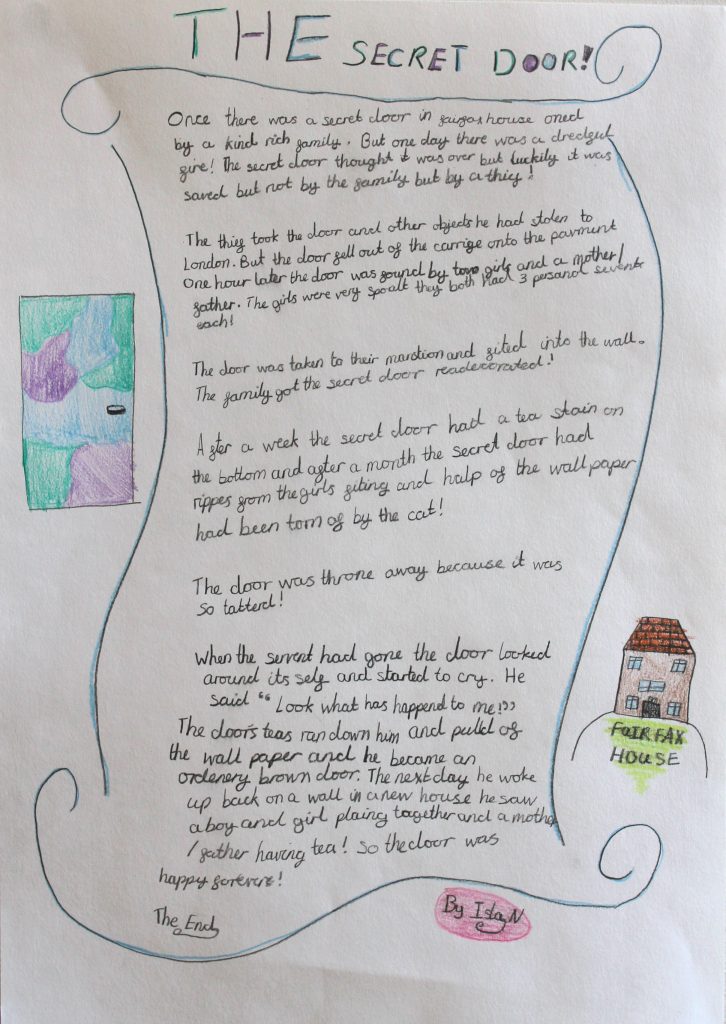 THE SECRET DOOR!
Once there was a secret door in faifax house oned
by a kind rich family. But one day there was a dredgut
fire! The secret door thought it was over but luckily it was
saved but not by the family but by a thif!
The thief took the door and other objects he had stolen to
London. But the door fell out of the carrige onto the pavment
One hour later the door was found by two girls and a mother/
father. The girls were very spoalt they both had 3 persanol sevents
each!
The door was taken to their manstion and fited into the wall.
The family got the secret door readecorated!
After a week the secret door had a tea stain on
the bottom and after a month the secret door had
rippes from the girls fiting and halp of the wall paper
had been torn of by the cat!
The door was throne away because it was
so tatterd!
When the servent had gone the door looked
around its self and started to cry. He
said "Look what has happend to me!"
The door's teas ran down him and pulld of
the wall paper and he became an
ordenery brown door. The next day he woke
up back on a wall in a new house he saw
a boy and girl plaing together and a mother
/father having tea! So the door was
happy forever!
The End
By Isla N
FAIRFAX
HOUSE